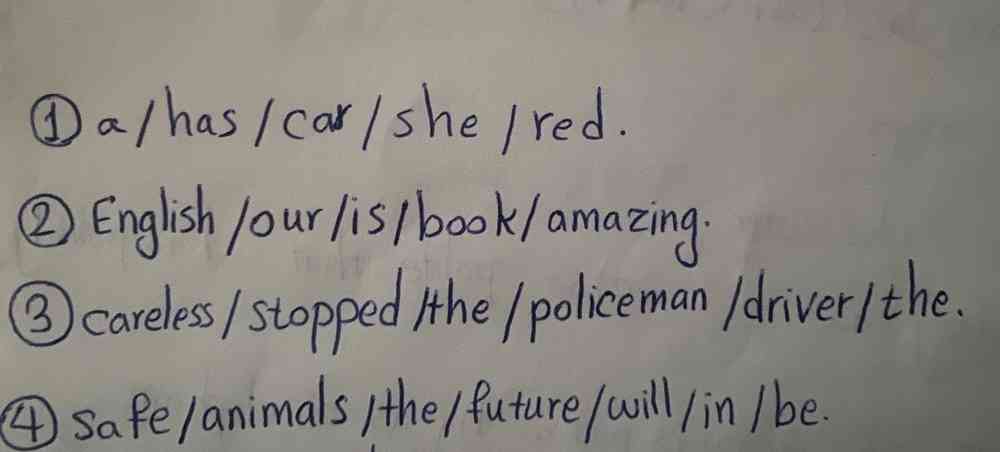 ① a/has/car/she/red.
② English/our/is/book/amazing.
③ careless/stopped/the/policeman/driver/the.
④ safe/animals/the/future/will/in/be.